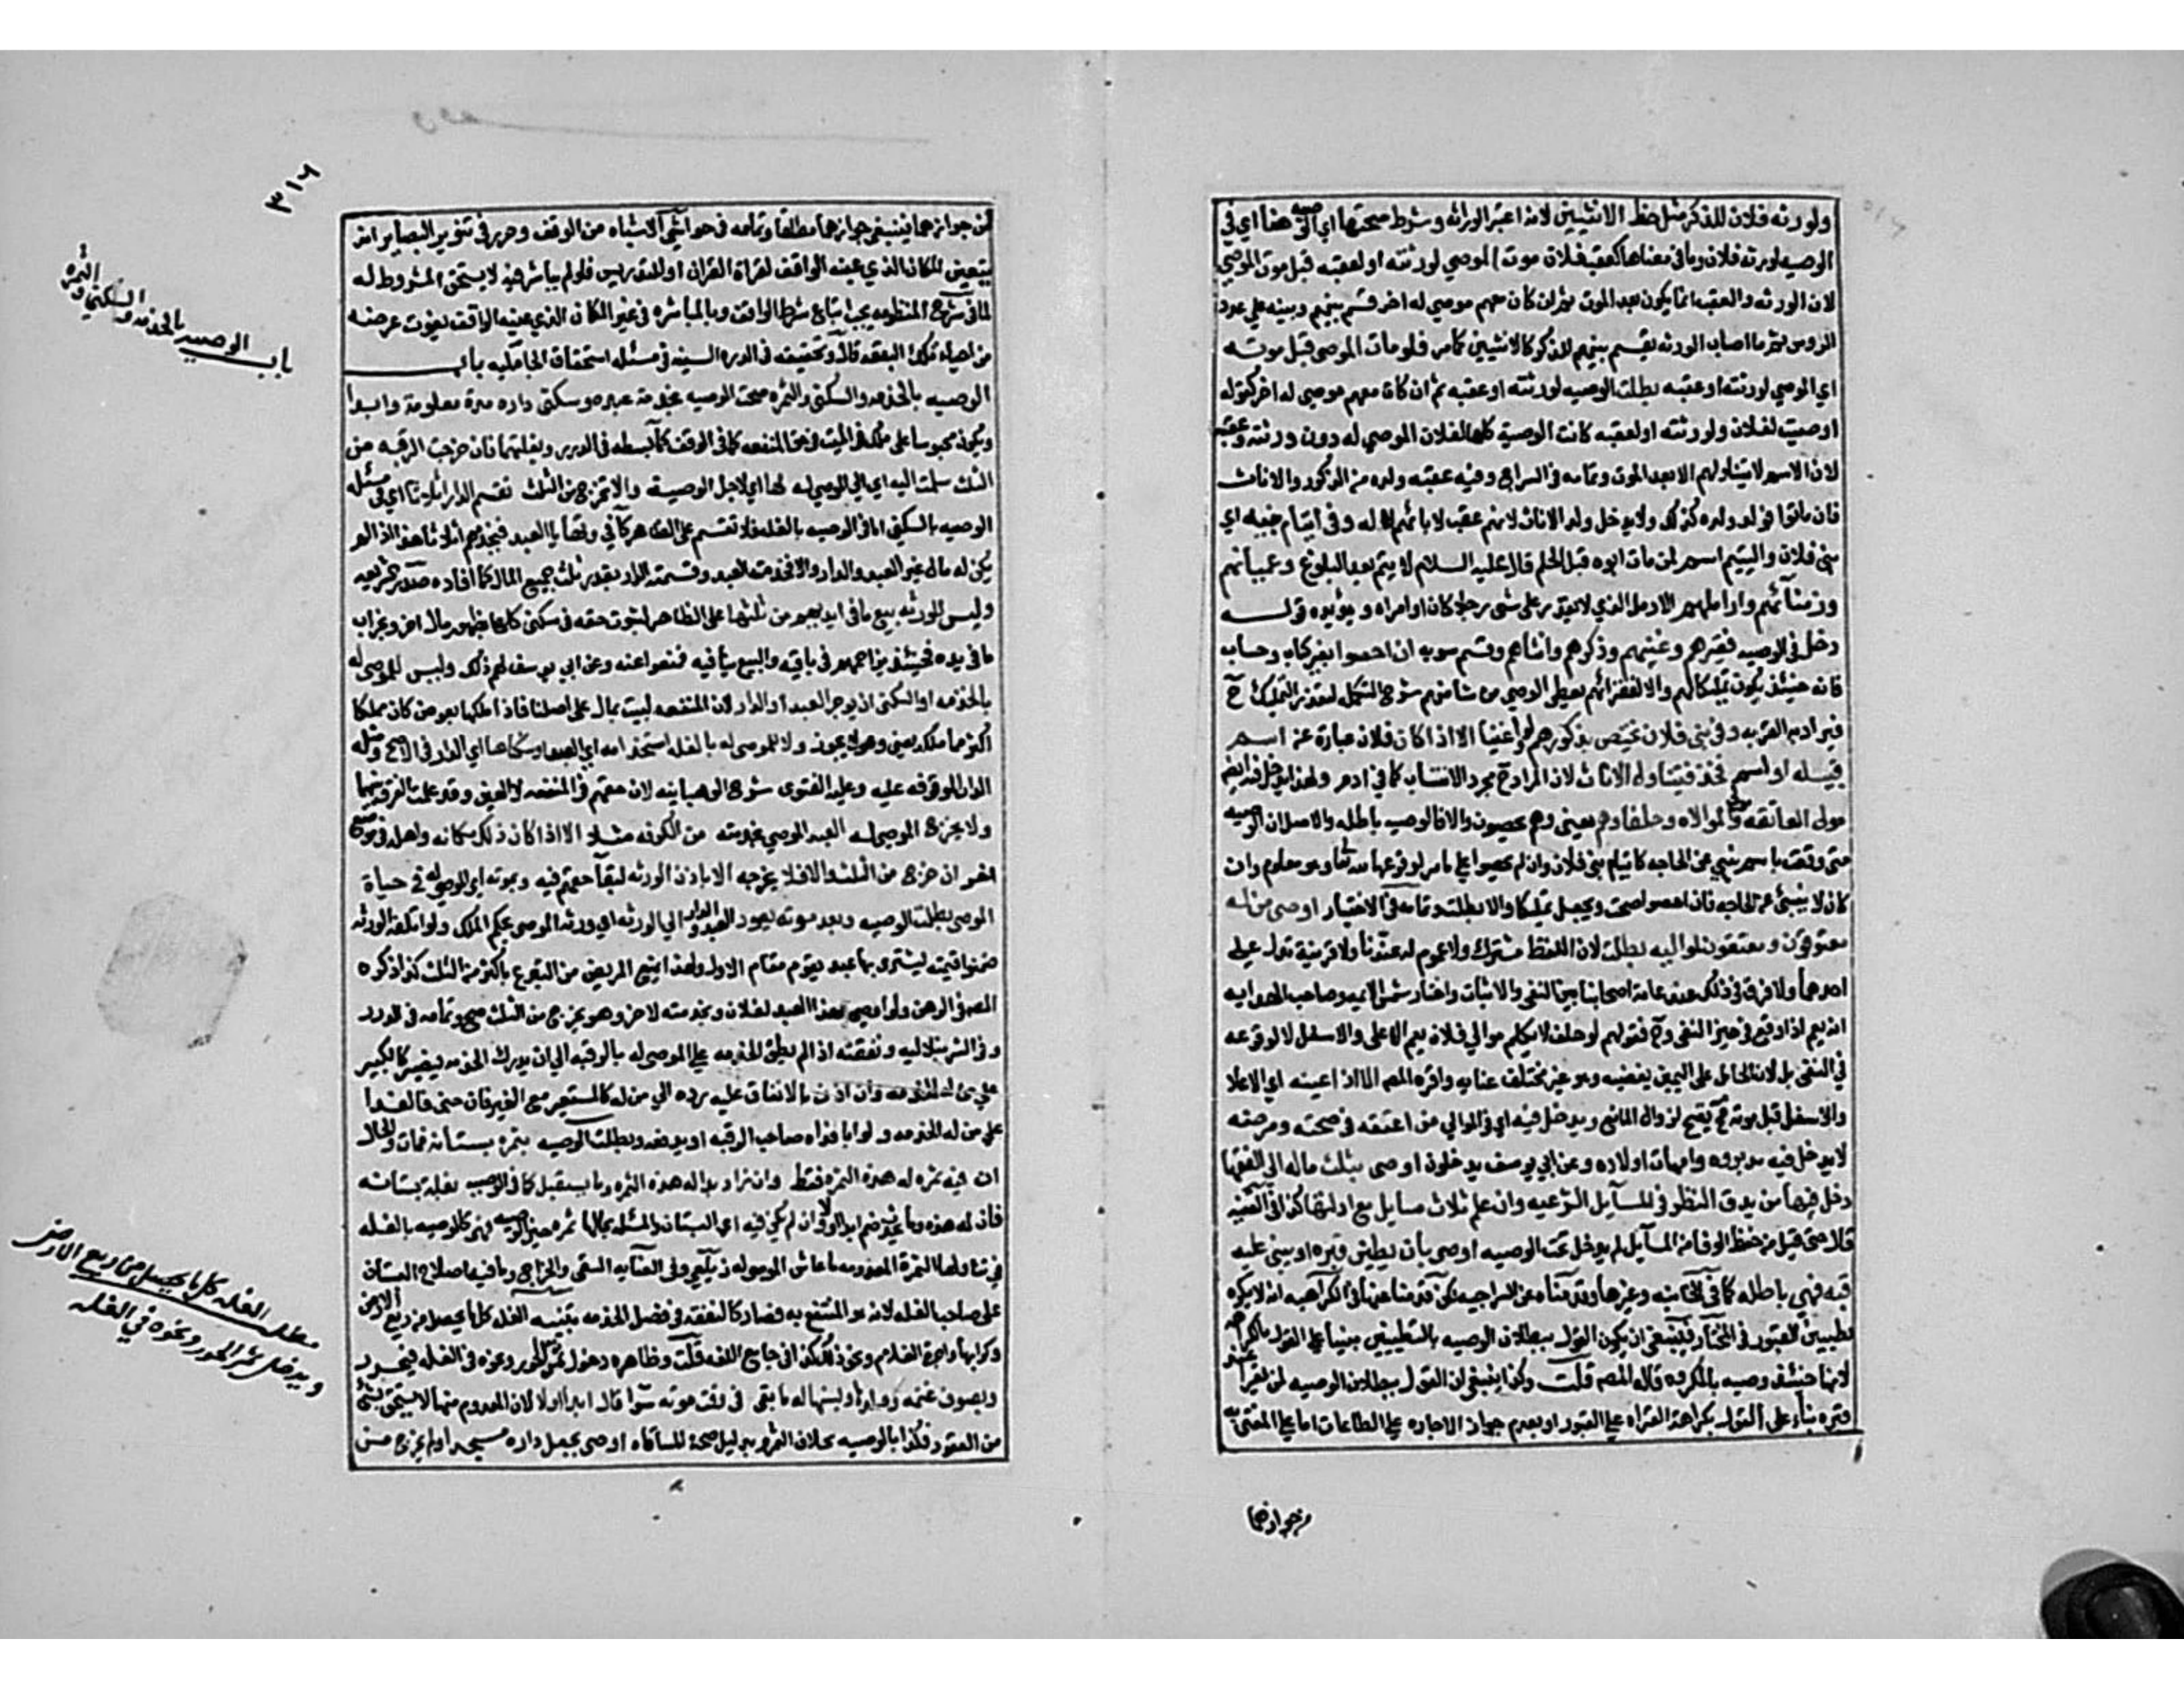 ولورثه فلان للذكر مثل حظ الانثيين لانه اعتبر الوراثه وشرط صحتها اي الوصيه هنا اي في
الوصيه لورثه فلان وما في معناها كعقب فلان موت الموصي لورثته او لعقبه قبل موت الموصي
لان الورثه والعقب انما يكون بعد الموت ثم ان كان معهم موصي له اخر قسم بينهم وبينه علي عدد
الروس ثم ما اصاب الورثه يقسم بينهم للذكر كالانثيين كما مر فلو مات الموصي قبل موته
اي الموصي لورثته او عقبه بطلت الوصيه لورثته او عقبه ثم ان كان معهم موصي له اخر كقوله
اوصيت لفلان ولورثته او لعقبه كانت الوصية كلها لفلان الموصي له دون ورثته وعقبه
لان الاسم لا يتناولهم الا بعد الموت وتمامه في السراج وفيه عقبه ولده من الذكور والاناث
فان ماتوا فولد ولده كذلك ولا يدخل ولد الاناث لانهم عقب لابائهم لا له وفي ايتام بنيه اي
بني فلان واليتيم اسم لمن مات ابوه قبل الحلم قال عليه السلام لا يتم بعد البلوغ وعميانهم
وزمنائهم واراملهم الارمل الذي لا يقدر على شي رجلا كان او امراه ويؤيده قوله
دخل في الوصيه فقيرهم وغنيهم وذكرهم وانثاهم وقسم سويه ان احصوا بغير كتاب وحساب
فانه حينئذ يكون تمليكا لهم والا لفقرائهم يعطي الوصي من شا منهم شرح التكمله لتعذر التمليك ح
فيراد به القربه وفي بني فلان يختص بذكورهم ولو اغنيا الا اذا كان فلان عبارة عن اسم
قبيله او اسم فخذ فيتناول الاناث لان المراد ح مجرد الانتساب كما في ادم ولهذا يدخل فيه ايضا
مولى العتاقه والموالاه وحلفاوهم يعني وهم يحصون والا فالوصيه باطله والاصل ان الوصيه
متى وقعت باسم ينبي عن الحاجه كايتام بني فلان وان لم يحصوا علي ما مر لوقوعها لله تعا وهو معلوم وان
كان لا ينبئ عن الحاجه فان احصو اصحت ويجعل تمليكا والا بطلت وتمامه في الاختيار اوصى من له
معتوقون ومعتقون لمواليه بطلت لان اللفظ مشترك ولا عموم له عندنا ولا قرينة تدل علي
احدهما ولا فرق في ذلك عند عامة اصحابنا بين النفي والاثبات واختار شمس الايمه وصاحب الهدايه
انه يعم اذا وقع في حيز النفي وح فقولهم لو حلف لا يكلم موالي فلان يعم الاعلى والاسفل لا لوقوعه
في النفي بل لان الحامل على اليمين بغضه وهو غير مختلف عنايه واقره المص الا اذا عينه اي الاعلا
والاسفل قبل موته فح يصح لزوال المانع ويدخل فيه اي في الموالي من اعتقه في صحته ومرضه
لا يدخل فيه مدبروه وامهات اولاده وعن ابي يوسف يدخلون اوصى بثلث ماله الى الفقها
دخل فيها من يدق النظر في المسآيل الشرعيه وان علم ثلاث مسايل مع ادلتها كذا في القنيه
قال حتى قيل من حفظ الوفا من المسايل لم يدخل تحت الوصيه اوصى بان يطين قبره او يبني عليه
قبه فهي باطله كما في الخانيه وغيرها وقدمناه عن السراجيه لكن قدمنا عنها في الكراهيه انه لا يكره
تطيين القبور في المختار فينبغي ان يكون القول ببطلان الوصيه بالتطيين مبنيا علي القول بالكراهه
لانها حينئذ وصيه بالمكروه قاله المصم قلت وكذا ينبغي ان القول ببطلان الوصيه لمن يقرا عند
قبره بناء على القول بكراهة القراه علي القبور او بعدم جواز الاجاره علي الطاعات اما علي المفتي به
من جوازهما
٣١٦
من جوازهما فينبغي جوازهما مطلقا وتمامه في حواشي الاشباه من الوقف وحرر في تنوير البصاير انه
يتعين المكان الذي عينه الواقف لقراة القران او للتدريس فلو لم يباشر فيه لا يستحق المشروط له
لما في شرح المنظومه يجب اتباع شرط الواقف وبالمباشره في غير المكان الذي عينه الواقف يفوت غرضه
من احياء تلك البقعه قال وتحقيقه في الدره السنيه في مسئله استحقاق الجامكيه باب
الوصيه بالخدمه والسكني والثمره صحت الوصيه بخدمة عبده وسكني داره مدة معلومة وابدا
ويكون محبوسا على ملك الميت في حق المنفعه كما في الوقف كما بسطه في الدرر وبغلتهما فان خرجت الرقبه من
الثلث سلمت اليه اي الي الموصي له لها اي لاجل الوصية والا تخرج من الثلث تقسم الدار اثلاثا اي في مسئله
الوصيه بالسكني اما في الوصيه بالغله فلا تقسم على الظاهر كما في وتهايا العبد فيخدمهم اثلاثا هذا اذا لم
يكن له مال غير العبد والدار والا فخدمة العبد وقسمة الدار بقدر ثلث جميع المال كما افاده صدر الشريعه
وليس للورثه بيع ما في ايديهم من ثلثها على الظاهر لثبوت حقه في سكني كلها بظهور مال اخر وبخراب
ما في يده فحينئذ يزاحمهم في باقيه والبيع ينافيه فمنعوا عنه وعن ابي يوسف لهم ذلك وليس للموصى له
بالخدمه او السكني ان يوجر العبد او الدار لان المنفعه ليست بمال على اصلنا فاذا ملكها بعوض كان مملكا
اكثر مما ملكه يعني وهو لا يجوز ولا للموصى له بالغله استخدامه اي العبد او سكناها اي الدار في الاصح ومثله
الدار الموقوفه عليه وعليه الفتوى شرح الوهبانيه لان حقهم في المنفعه لا العين وقد علمت الفرق بينهما
ولا يخرج الموصي له العبد الموصي بخدمته من الكوفه مثلا الا اذا كان ذلك مكانه واهله في موضع
اخر ان خرج من الثلث والا فلا يخرجه الا باذن الورثه لبقا حقهم فيه وبموته اي الموصي له في حياة
الموصى بطلت الوصيه وبعد موته يعود العبد والدار الي الورثه اي ورثه الموصى بحكم الملك ولو اتلفه الورثه
ضمنوا قيمته ليشتري بها عبد يقوم مقام الاول ولهذا يمنع المريض من التبرع باكثر من الثلث كذا ذكره
المص في الرهن ولو اوصي بهذا العبد لفلان وبخدمته لاخر وهو يخرج من الثلث صح وتمامه في الدرر
وفي الشرنبلاليه ونفقته اذا لم يطق الخدمه علي الموصى له بالرقبه الي ان يدرك الخدمه فيصير كالكبير
علي من له الخدمه وان ابي الانفاق عليه رده الي من له كالمستعير مع الغير فان جنى فالفدا
علي من له الخدمه ولو ابا فداه صاحب الرقبه او يدفعه وبطلت الوصيه بثمرة بستانه فمات والحال
ان فيه ثمره له هذه الثمره فقط وان زاد ابدا له هذه الثمره وما يستقبل كما في الوصيه بغله بستانه
فان له هذه وما يحدث ضم ابدا اولا وان لم يكن فيه اي البستان والمسئله بحالها ثمره حين الوصيه فهي كالوصيه بالغله
في تناولها الثمرة المعدومه ما عاش الموصى له زيلعي وفي العنايه السقي والخراج وما فيه اصلاح البستان
على صاحب الغله لانه هو المنتفع به فصار كالنفقه في فصل الخدمه تنبيه الغله كل ما يحصل من ريع الارض
وكرايها واجرة الغلام ونحو ذلك كذا في جامع اللغه قلت وظاهره دخول ثمر الحور ونحوه في الغله فيحرر
وبصوف غنمه وولدها ولبنها له ما بقى في وقت موته سوا قال ابدا اولا لان المعدوم منها لا يستحق بشئ
من العقود فكذا بالوصيه بخلاف الثمره بدليل صحة المساقاه اوصى بجعل داره مسجدا ولم تخرج من
باب الوصيه بالخدمه والسكني والثمره
مطلب الغله كل ما يحصل من ريع الارض
ويدخل ثمر الحور ونحوه في الغله